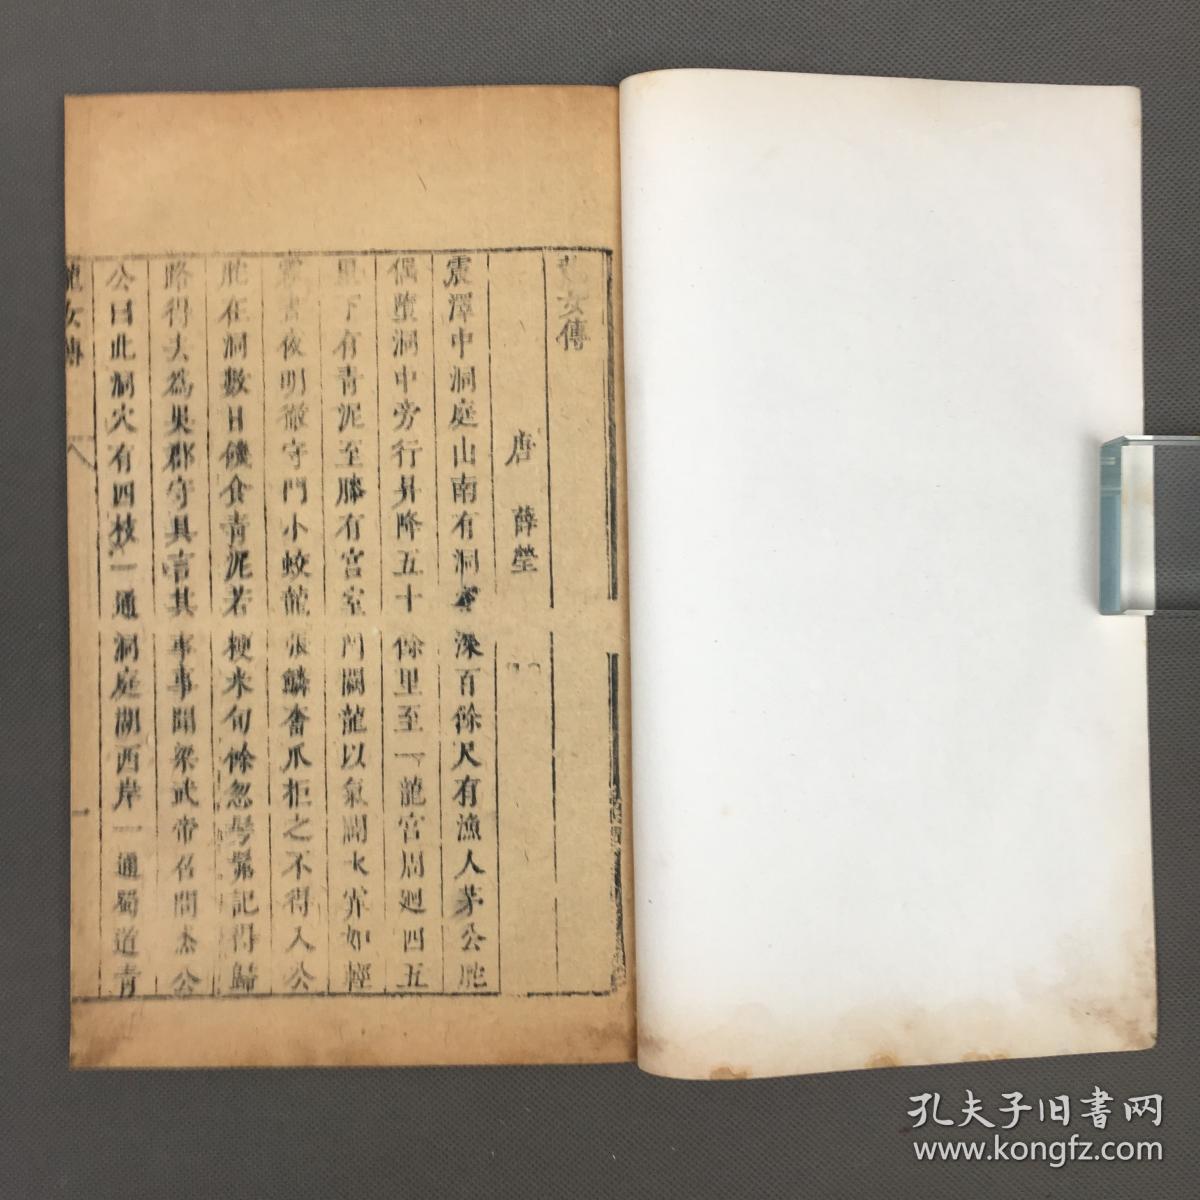 龍女傳
唐 薛瑩
震澤中洞庭山南有洞穴深百餘尺有漁人茅公䏢
偶墮洞中旁行昇降五十餘里至一龍宮周廻四五
里下有青泥至膝有宮室門闕龍以氣闢水霏如輕
霧晝夜明徹守門小蛟龍張鱗奮爪拒之不得入公
䏢在洞數日饑食青泥若粳米旬餘忽髣髴記得歸
路得去為吳郡守具言其事事聞梁武帝召問杰公
公曰此洞穴有四枝一通洞庭湖西岸一通蜀道青
龍女傳 八 一
孔夫子旧书网
www.kongfz.com